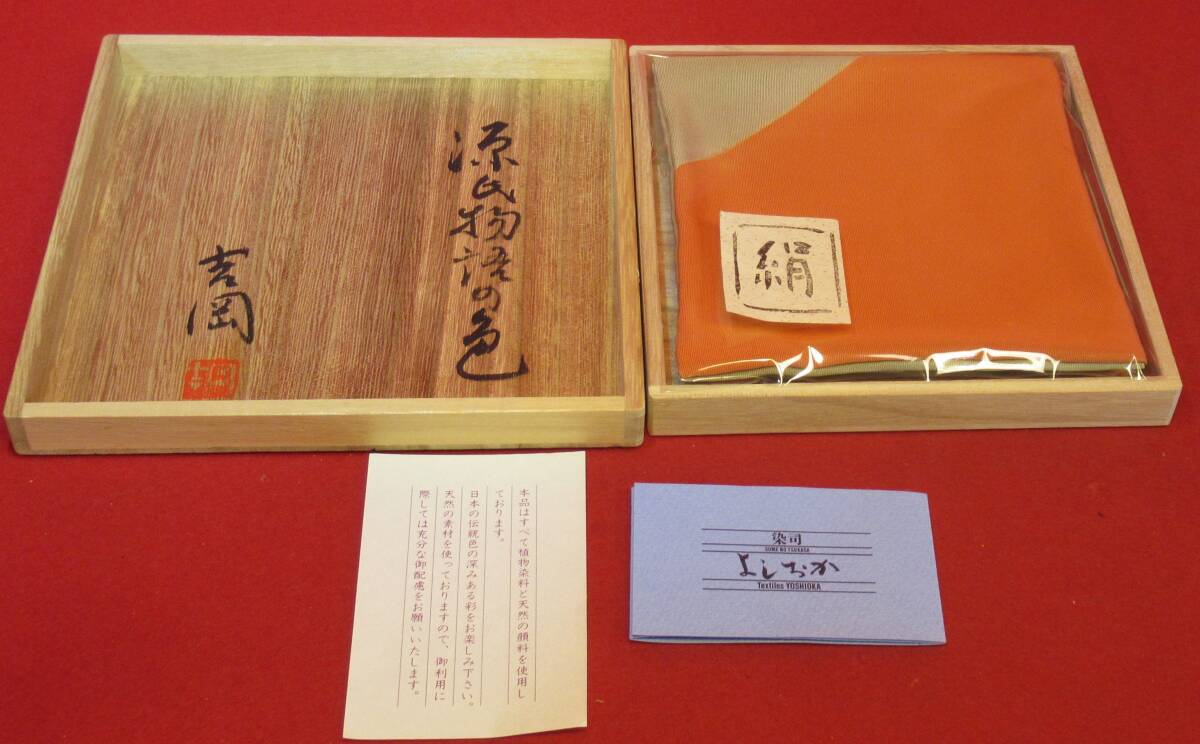 源氏物語の色
吉岡
絹
本品はすべて植物染料と天然の顔料を使用し
ております。
日本の伝統色の深みある彩をお楽しみ下さい。
天然の素材を使っておりますので、御利用に
際しては充分な御配慮をお願いいたします。
染司
SOME NO TSUKASA
よしおか
Textiles YOSHIOKA